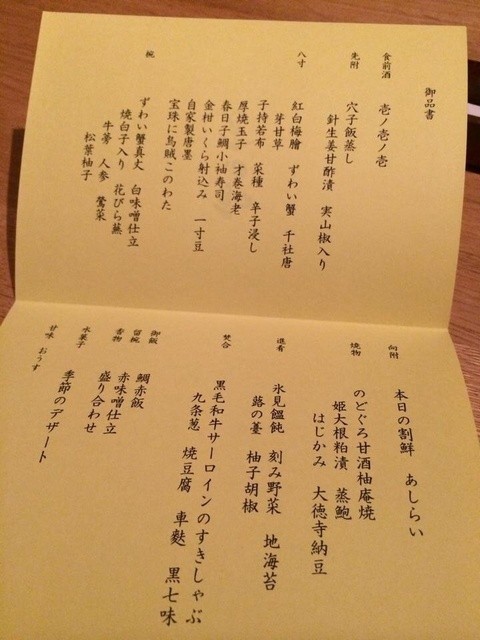 御品書
食前酒
壱ノ壱ノ壱
先附
穴子飯蒸し
針生姜甘酢漬 実山椒入り
八寸
紅白梅膾 ずわい蟹 千社唐
芽甘草
子持若布 菜種 辛子浸し
厚焼玉子 才巻海老
春日子鯛小袖寿司
金柑いくら射込み 一寸豆
自家製唐墨
宝珠に烏賊このわた
椀
ずわい蟹真丈 白味噌仕立
焼白子入り 花びら蕪
牛蒡 人参 鶯菜
松葉柚子
向附
本日の割鮮 あしらい
焼物
のどぐろ甘酒柚庵焼
姫大根粕漬 蒸鮑
はじかみ 大徳寺納豆
進肴
氷見饂飩 刻み野菜 地海苔
蕗の薹 柚子胡椒
焚合
黒毛和牛サーロインのすきしゃぶ
九条葱 焼豆腐 車麩 黒七味
御飯
鯛赤飯
留椀
赤味噌仕立
香物
盛り合わせ
水菓子
季節のデザート
甘味 おうす